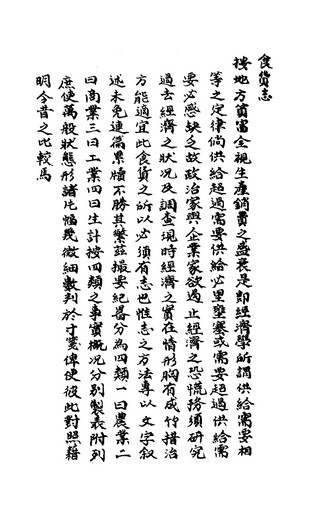 食貨志
按地方貧富全視生產銷費之盛衰是即經濟學所謂供給需要相
等之定律倘供給超過需要供給必里壅塞或需要超過供給需
要必感缺乏故政治家與企業家欲遏止經濟之恐慌務須研究
過去經濟之狀况及調查現時經濟之實在情形胸有成竹措治
方能適宜此食貨之所以必須有志也惟志之方法專以文字叙
述未免連篇累牘不勝其繁茲撮要紀畧分為四類一曰農業二
曰商業三曰工業四曰生計按四類之事實概况分別製表附列
庶使萬般狀態形諸片幅幾微細數判於寸箋俾使彼此對照藉
明今昔之比較焉